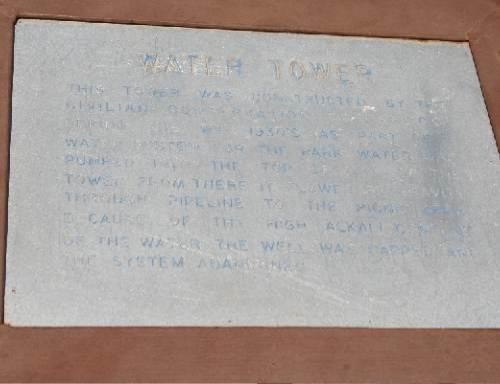 WATER TOWER
THIS TOWER WAS CONSTRUCTED BY THE
CIVILIAN CONSERVATION
1930'S AS PART
WATER SYSTEM FOR THE PARK WATER
PUMPED INTO THE TOP
TOWER FROM THERE IT FLOWED
THROUGH PIPELINE TO THE
BECAUSE OF THE HIGH ALKALI
OF THE WATER THE WELL WAS CAPPED AND
THE SYSTEM ABANDONED